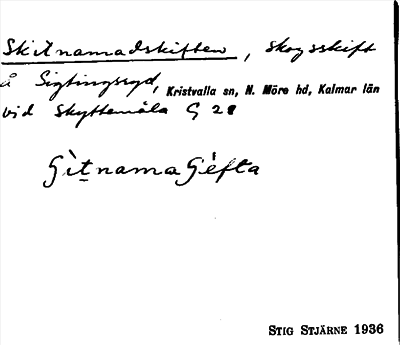 Skitnamadskiften, skogsskift
å Sigtingsryd, Kristvalla sn, N. Möre hd, Kalmar län
vid Skyttemåla G 28
STIG STJÄRNE 1936